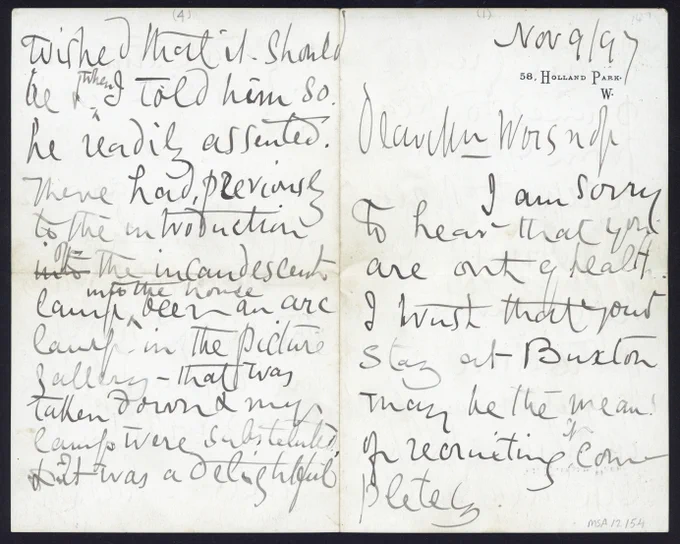 (1)
Nov 9/97
58, Holland Park.
W.
Dear Mr Worsnop
I am sorry
to hear that you
are out of health.
I trust that your
stay at Buxton
may be the means
of recruiting you com
pletely.
(4)
wished that it should
be & when I told him so.
he readily assented.
There had, previously
to the introduction
into of the incandescent
lamp into the house been an arc
lamp in the picture
gallery – that was
taken down & my
lamps were substituted.
& it was a delightful
MSA.17.154